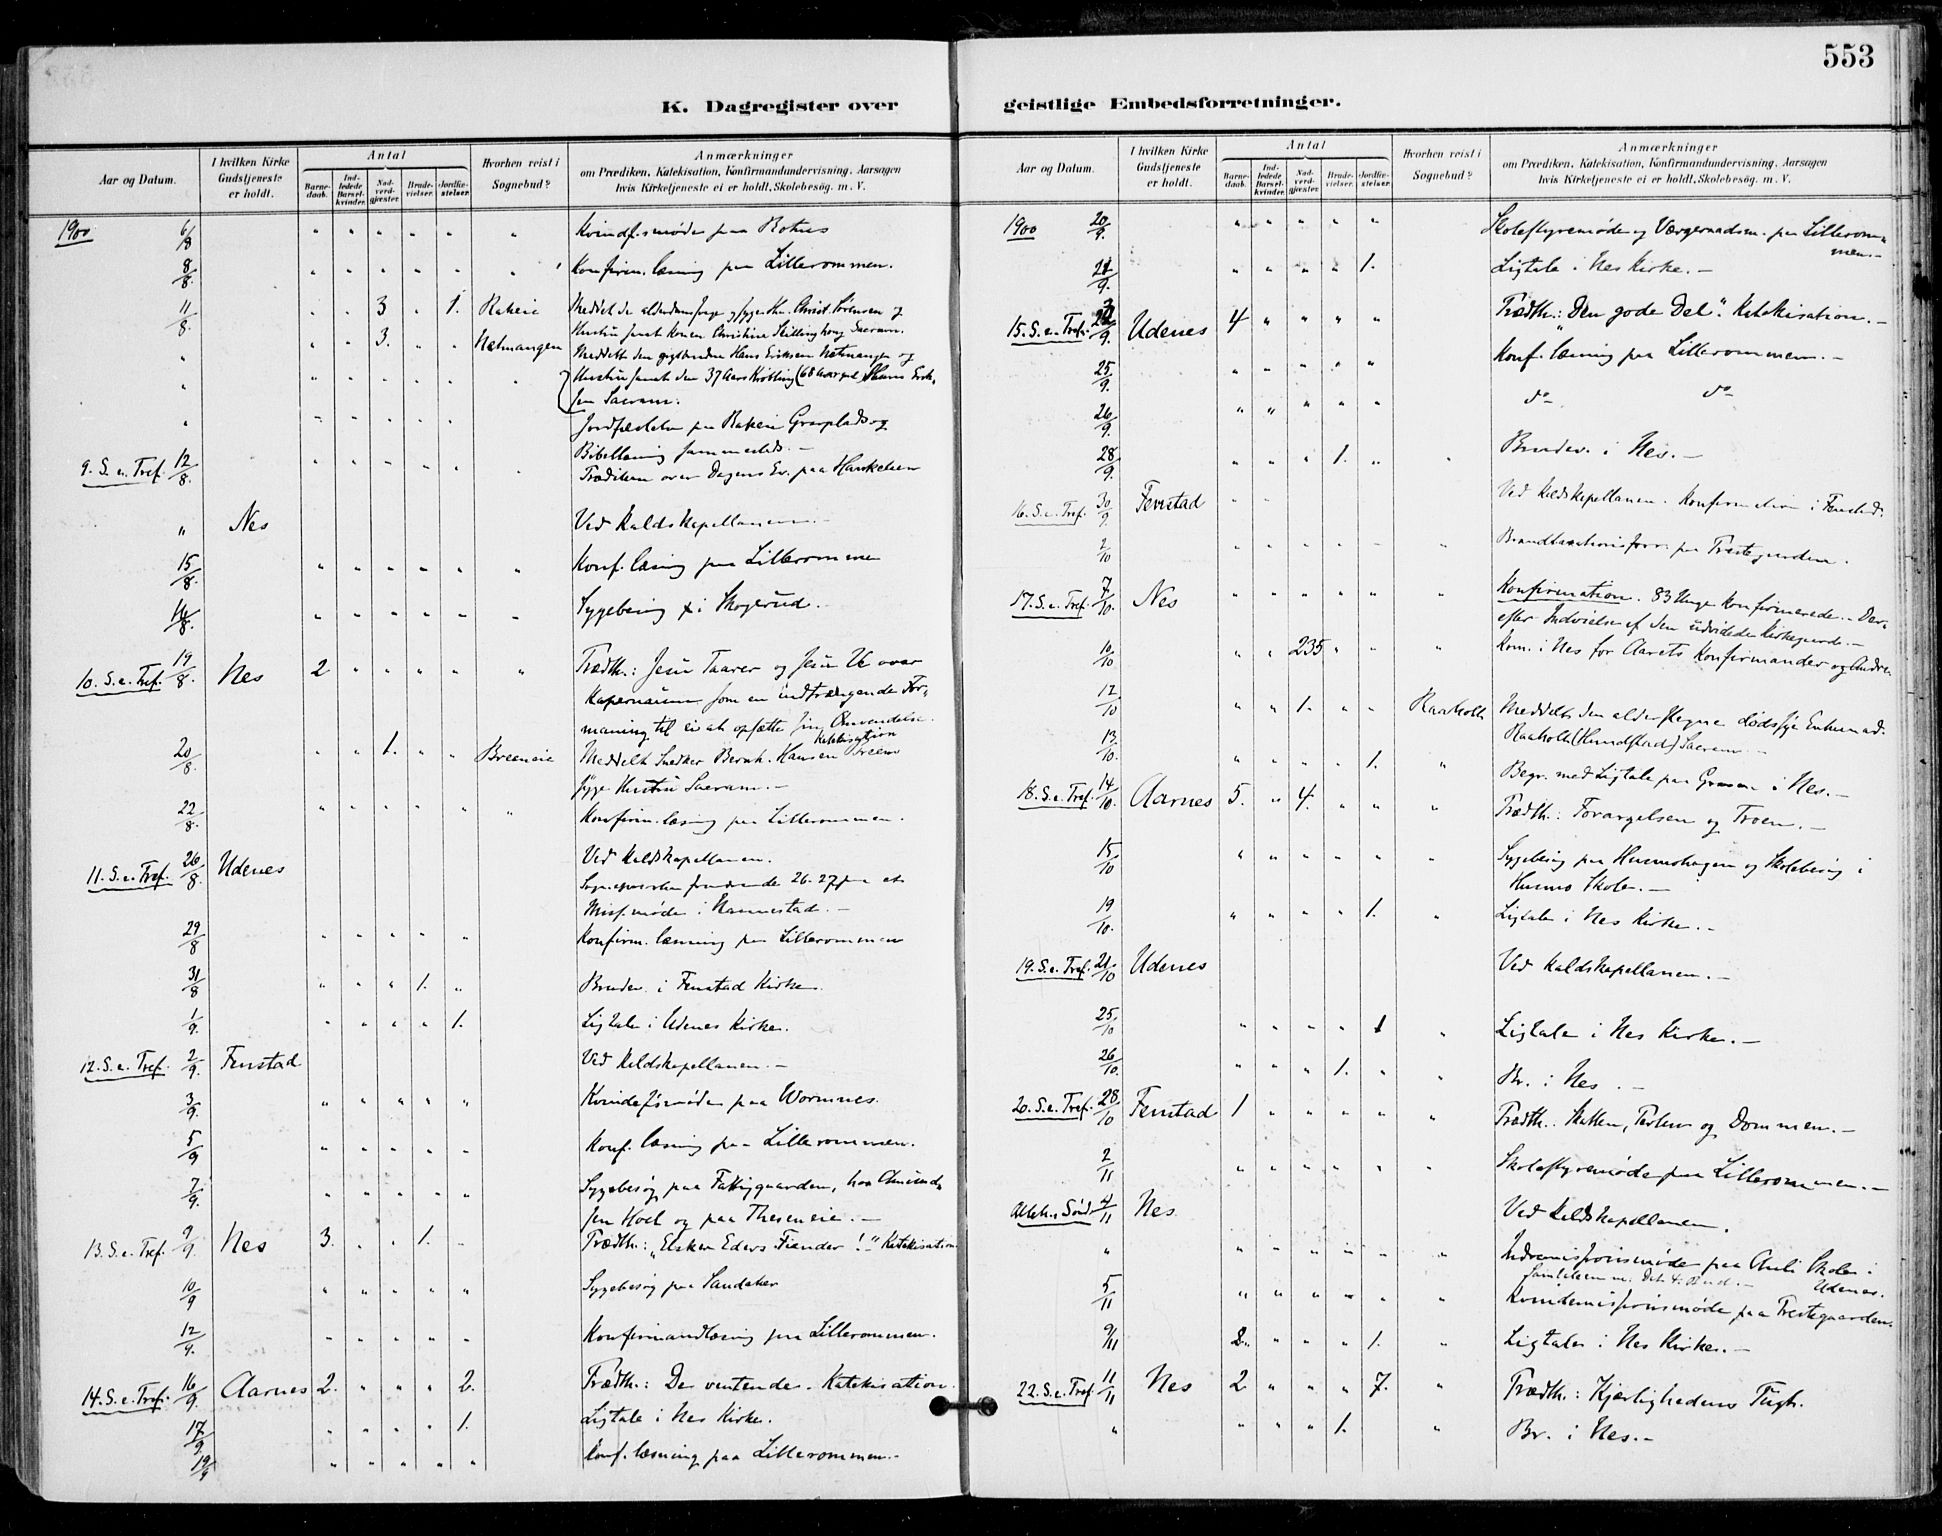 553
K. Dagregister over geistlige Embedsforretninger.
Aar og Datum. I hvilken Kirke Gudstjeneste er holdt. Antal Barne-daab. Ind-ledede Barsel-kvinder. Nad-verd-gjæster. Brude-vielser. Jordfæ-stelser. Hvorhen reist i Sognebud? Anmærkninger om Prædiken, Katekisation, Konfirmandundervisning, Aarsagen hvis Kirketjeneste ei er holdt, Skolebesøg. m. V.
1900 6/8 " " " " " " Kvindf.smøde paa Rotnes
8/8. " " " " " " Konfirm.læsning paa Lillerommen.
11/8. " " 3 " 1. Rakeie Meddelt de alderdomssvage og syge Christ. Sørensen og
Hustru samt Konen Christine Sacram.
" " " 3. " " Netmangen Meddelt den Hans Eriksen Netmangen og
" " " " " " " Hustru samt den 37 Aars Krøbling (68 Aar gl.) Hans Erik-
sen Sacram.
" " " " " " Jordfæstelse paa Rakeie Gravplads og
Bibellæsning sammesteds.
9. S. e. Tref. 12/8. " " " " " " Prædiken over Dagens Ev. paa Haukelien
" Nes Ved Kaldskapellanen.-
15/8. " " " " " " Konf.læsning paa Lillerommen
16/8. " " " " " " Sygebesøg i Skogerud.
10. S. e. Tref. 19/8. Nes 2 " " " " " Prædth.: Jesu Taarer og Jesu Ve over
Kapernaum som en indtrængende For-
maning til ei at opsætte sin Omvendelse.
Katekisation
20/8. " " 1. " " Breeneie Meddelt Snedker Bernh. Hansen Breens
syge Hustru Sacram.-
22/8. " " " " " " Konfirm.læsning paa Lillerommen.
11. S. e. Tref. 26/8. Udenes Ved Kaldskapellanen.
Sognepresten fraværende 26.27 paa et
Miss.møde i Nannestad.-
29/8 " " " " " Konfirm.læsning paa Lillerommen
31/8 " " " 1. " Brudev. i Fenstad Kirke.
1/9. " " " " 1. Ligtale i Udenes Kirke.
12. S. e. Tref. 2/9. Fenstad Ved Kaldskapellanen.-
3/9. " " " " " Kvindefsmøde paa Wormnes.
5/9 " " " " " Konf.læsning paa Lillerommen.
7/9. " " " " " Sygebesøg paa Fattiggaarden, hos Amund-
sen Hoel og paa Theseneie.-
13. S. e. Tref. 9/9. Nes 3. " " 1. " Prædth.: "Elsker Eders Fiender!" Katekisation
10/9 " " " " " Sygebesøg paa Sandaker
12/9. " " " " " Konfirmandlæsning paa Lillerommen.
14. S. e. Tref. 16/9. Aarnes 2. " " " 2. Prædth.: De ventende. Katekisation.
17/9. " " " " 1. Ligtale i Nes Kirke.
19/9 " " " " " Konf.læsning paa Lillerommen.-
Aar og Datum. I hvilken Kirke Gudstjeneste er holdt. Antal Barne-daab. Ind-ledede Barsel-kvinder. Nad-verd-gjæster. Brude-vielser. Jordfæ-stelser. Hvorhen reist i Sognebud? Anmærkninger om Prædiken, Katekisation, Konfirmandundervisning, Aarsagen hvis Kirketjeneste ei er holdt, Skolebesøg. m. V.
1900 20/9. " " " " " Skolestyremøde og Værgeraadsm. paa Lillerom-
men.-
21/9. " " " " 1. Ligtale i Nes Kirke.-
15. S. e. Tref. 23/9. Udenes 4 " " " " Prædth.: "Den gode Del". Katekisation.-
25/9. " " " " " Konf.læsning paa Lillerommen.-
26/9. " " " " " do do
28/9. " " " 1. " " Brudev. i Nes.-
16. S. e. Tref. 30/9. Fenstad " " Ved Kaldskapellanen. Konfirmation i Fenstad.
2/10 " " " " " " Brandtaxtionsforr. paa Prestegaarden.
17. S. e. Tref. 7/10. Nes " " " " " " Konfirmation. 83 Unge konfirmerede.- Der-
efter Indvielse af den udvidede Kirkegaard.-
10/10 " " 235 " " " Kom. i Nes for Aarets Konfirmander og Andre
12/10 " " 1. " " Raaholt Meddelt den alderstegne dødssyge Enkemad.
Raaholt (Hundstad) Sacram.-
13/10. " " " " 1. " Begr. med Ligtale paa Graven i Nes.-
18. S. e. Tref. 14/10. Aarnes 5. " 4. " " " Prædth.: Forargelsen og Troen.-
15/10 " " " " " " Sygebesøg paa Husmohagen og Skolebesøg i
Husmo Skole.-
19/10. " " " " 1. " Ligtale i Nes Kirke.-
19. S. e. Tref. 21/10 Udenes Ved Kaldskapellanen.-
25/10 " " " " 1 " Ligtale i Nes Kirke.-
26/10. " " " 1. " " Br. i Nes.-
20. S. e. Tref. 28/10 Fenstad 1 " " " " " Prædth.: Skatten, Perlen og Dommen.-
2/11 " " " " " " Skolestyremøde paa Lillerommen.-
Alleh. Sønd. 4/11 Nes Ved Kaldskapellanen.
" " " " " " " Indremissionsmøde paa Auli Skole i
Udenes.
Samtalem m. Det 4. Bud.-
5/11 " " " " " " Kvindemissionsmøde paa Prestegaarden.
9/11 2. " " " 1. " Ligtale i Nes Kirke.-
22. S. e. Tref. 11/11 Nes 2 " " " 7. " Prædth.: Kjærlighedens Tugt.
" " " " 1. " Br. i Nes.-